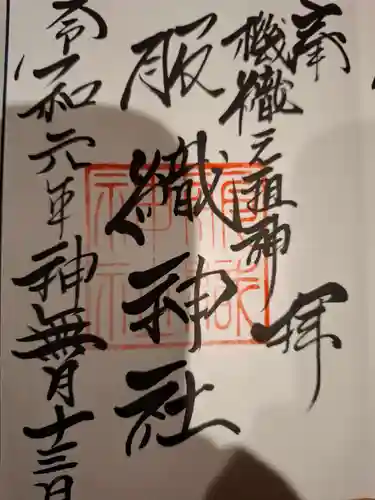 奉
拝
機織元祖神
服織神社
令和元年神無月十三日